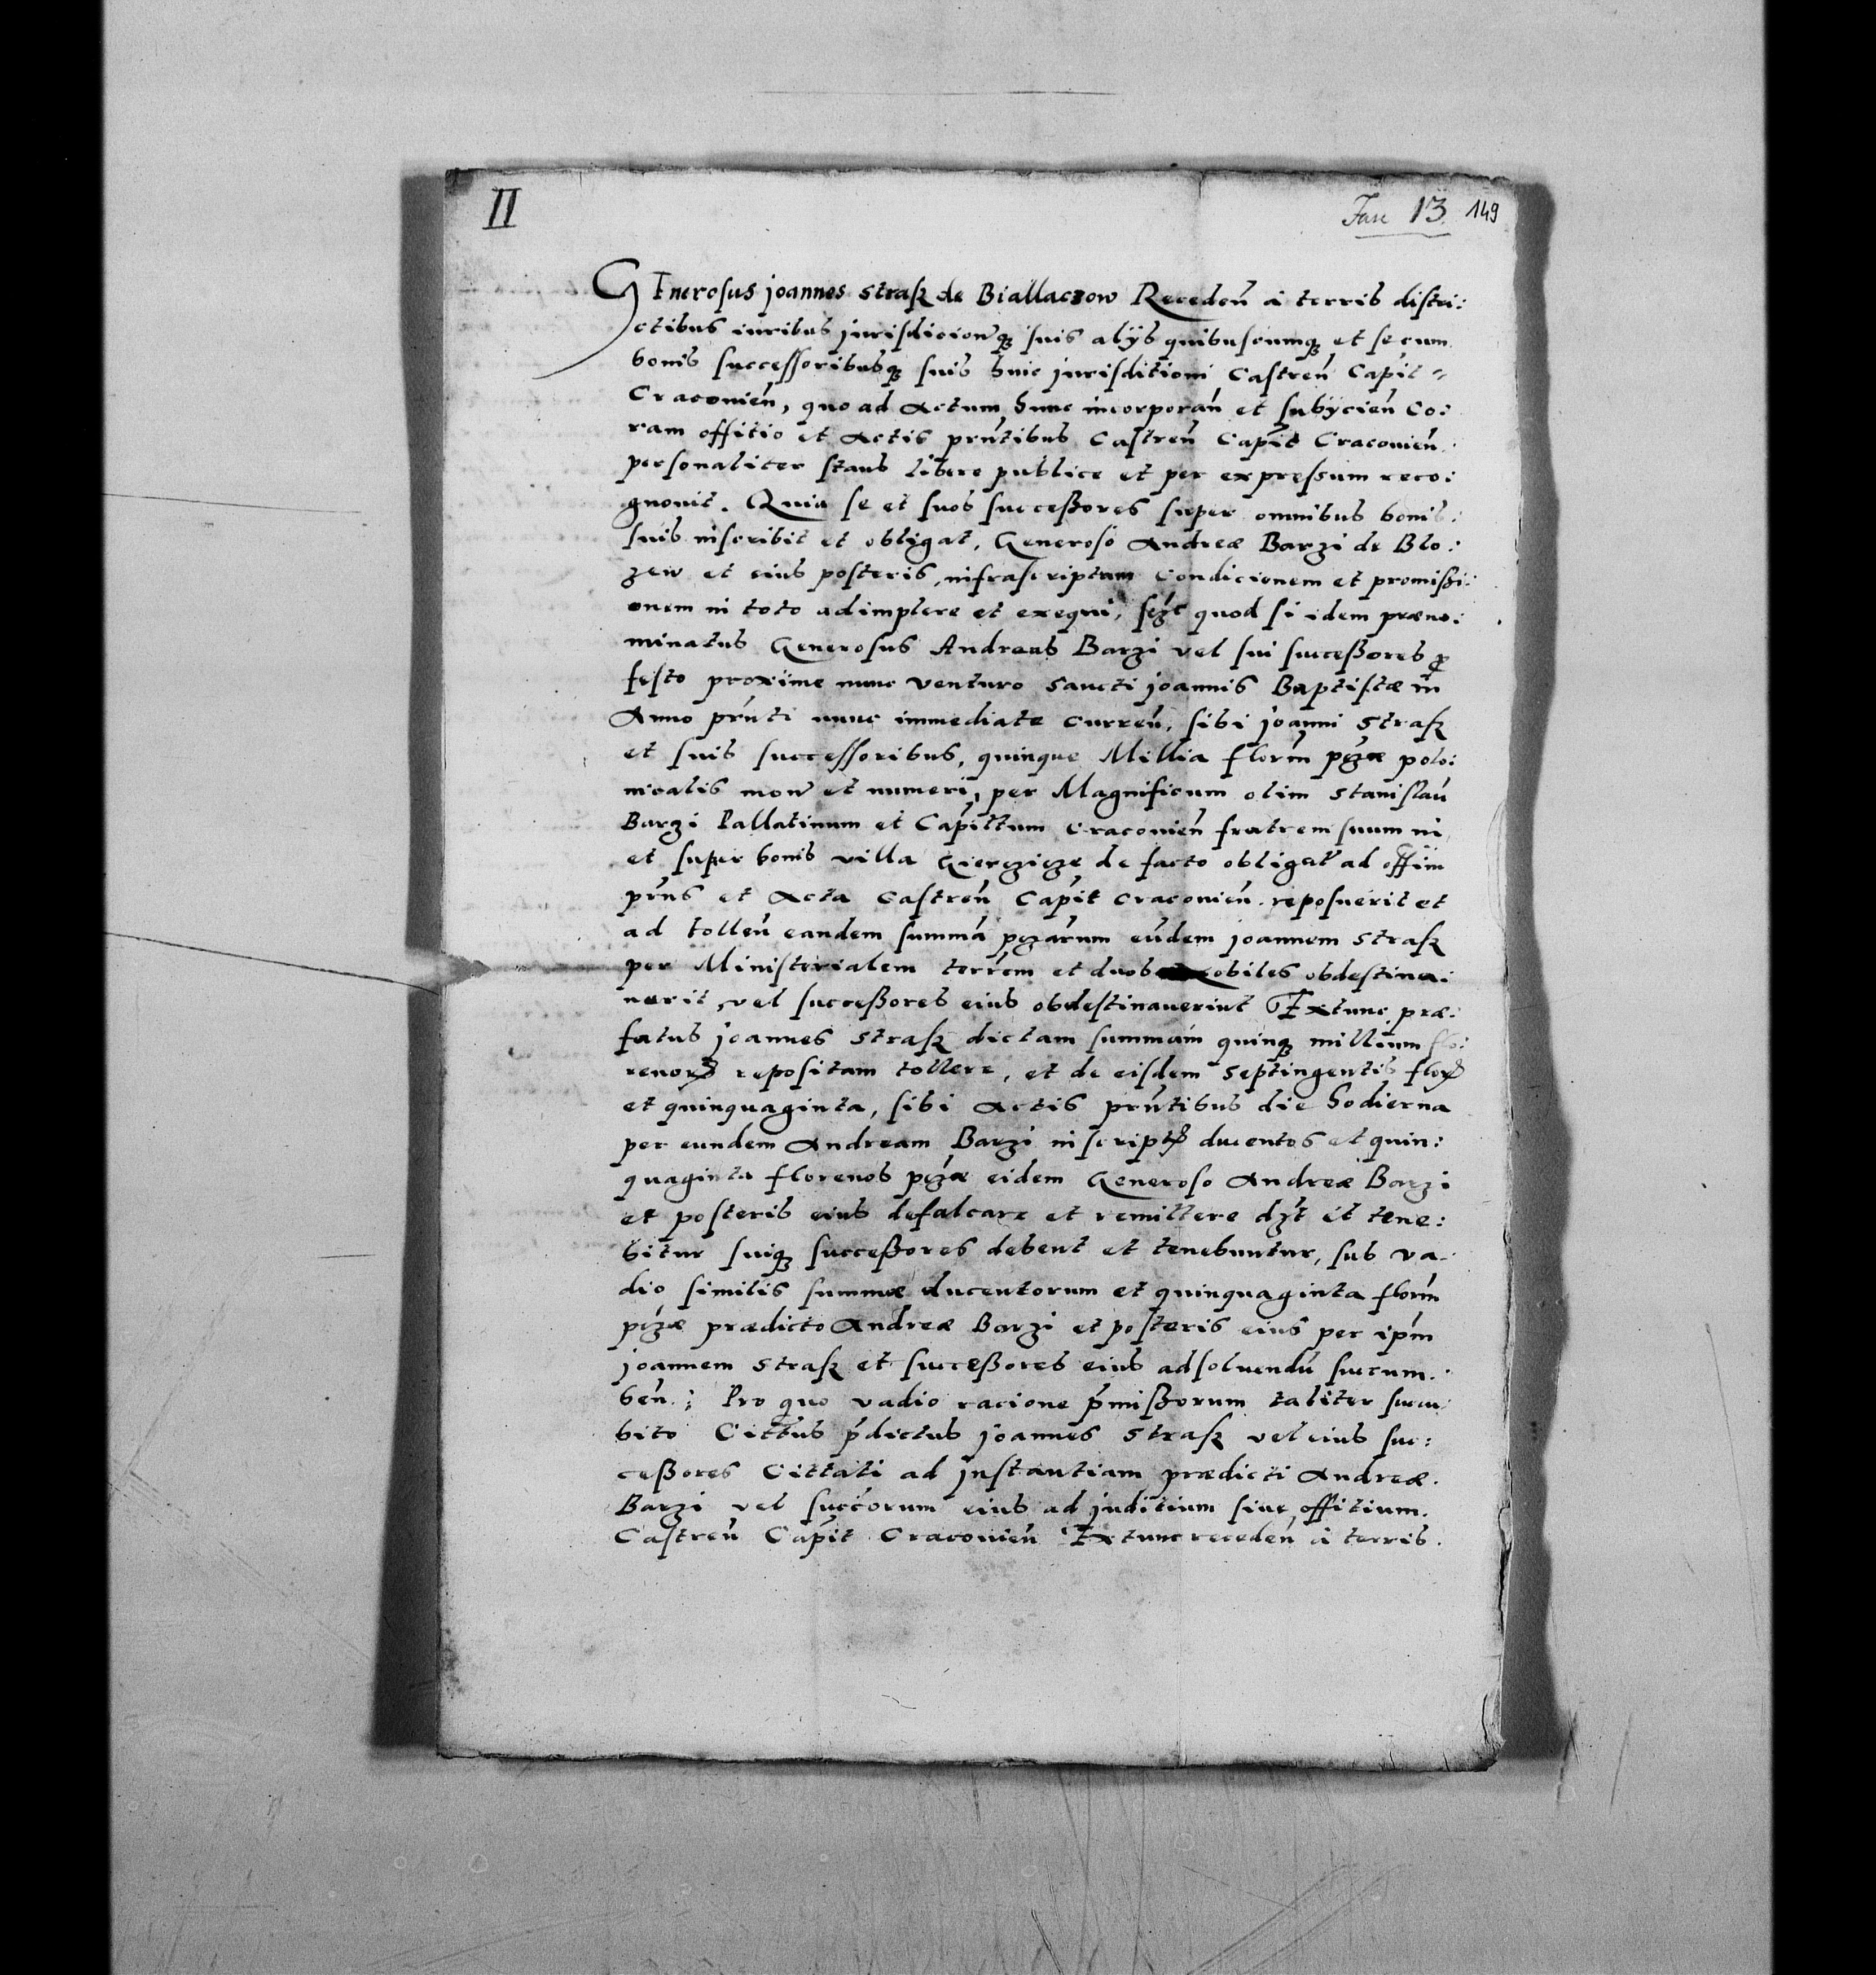 II
Fasc 13. 149
GEnerosus joannes Strasz de Biallaczow Recedeñ à terris distri:
ctibus iuribus jurisdicionq̃ suis alÿs quibuscumq̃ et se cum
bonis successoribusq̃ suis huic jurisditioni Castreñ Capit
Cracovieñ, quo ad Actum hunc incorporañ et subÿcieñ Co:
ram offitio et Actis prñtibus Castreñ Capit Cracovieñ.
personaliter stans libere publice et per expressum reco:
gnovit. Quia se et suos successores super omnibus bonis:
suis inscribit et obligat, Generoso Andreæ Barzi de Blo:
zew et eius posteris, infrascriptam condicionem et promissi:
onem in toto adimplere et exequi, sczt quod si idem præno:
minatus Generosus Andreas Barzi vel sui successores p
festo proxime nunc venturo Sancti joannis Baptistæ in
Anno prñti nunc immediate curreñ, sibi joanni Strasz
et suis successoribus, quinque Millia florm̃ pczæ polo:
nicalis mon̄ et numeri, per Magnificum olim Stanislaũ
Barzi Pallatinum et Capittum Cracovieñ fratrem suum in
et super bonis villa Gierczicze de facto obligat ad offim
prñs et Acta Castreñ Capit Cracovieñ. reposuerit et
ad tolleñ eandem summã pczarum eũdem joannem Strasz
per Ministerialem terrem et duos Nobiles obdestina:
verit, vel successores eius obdestinaverint Extunc præ:
fatus joannes Strasz dictam summam quinq̃ millium flo:
renorꝝ repositam tollere, et de eisdem septingentis florꝝ
et quinquaginta, sibi Actis prñtibus die hodierna
per eundem Andream Barzi inscriptꝭ ducentos et quin:
quaginta florenos pczæ eidem Generoso Andreæ Barzi
et posteris eius defalcare et remittere dzt et tene:
bitur suiq̃ successores debent et tenebuntur, sub va:
dio similis summæ ducentorum et quinquaginta florm̃
pczæ prædicto Andreæ Barzi et posteris eius per ip̃m
joannem Strasz et successores eius adsolvendũ succum:
beñ.; Pro quo vadio racione p̃missorum taliter succu
bito Cittus p̃dictus joannes Strasz vel eius suc:
cessores Cittati ad jnstantiam prædicti Andreæ.
Barzi vel succorum eius ad juditium sive offitium.
Castreñ Capit Cracovieñ Extunc recedeñ à terris.